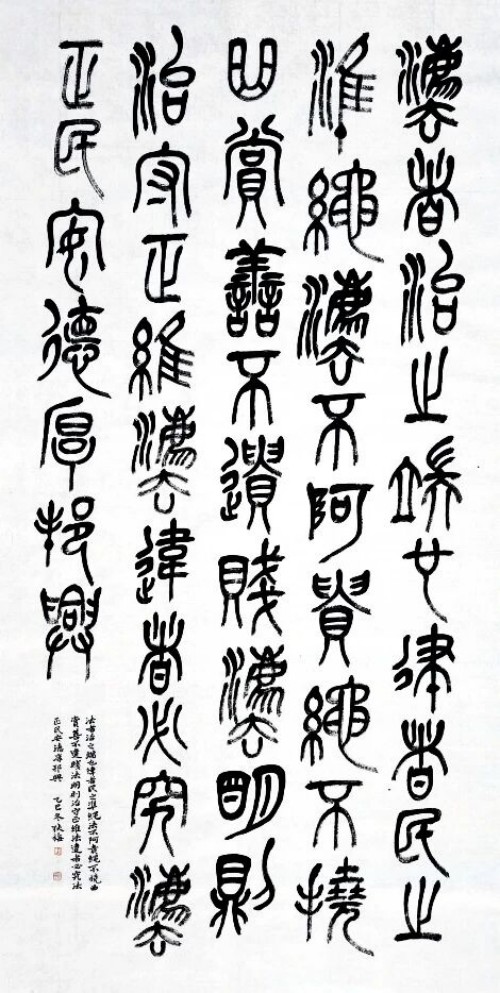 灋者治之端也律者民之
準繩灋不阿貴繩不撓
曲賞善不遺賤灋明則
治守正維灋違者必究灋
正民安德厚邦興
法者治之端也律者民之準繩法不阿貴繩不撓曲
賞善不遺賤法明則治守正維法違者必究法
正民安德厚邦興 乙巳冬